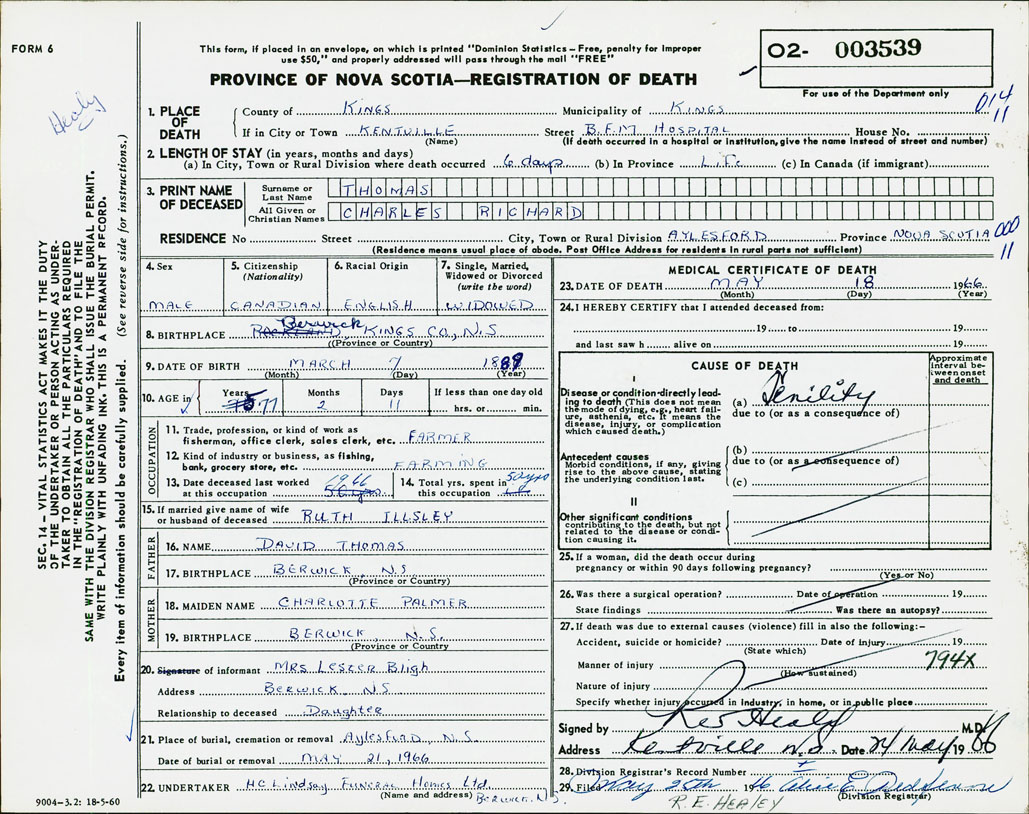 FORM 6
This form, if placed in an envelope, on which is printed "Dominion Statistics – Free, penalty for improper
use $50," and properly addressed will pass through the mail "FREE"
PROVINCE OF NOVA SCOTIA—REGISTRATION OF DEATH
O2- 003539
For use of the Department only
Healy
014
11
1. PLACE OF DEATH
County of KINGS Municipality of KINGS
If in City or Town KENTVILLE Street B.F.M HOSPITAL House No.
(Name) (If death occurred in a hospital or institution, give the name instead of street and number)
2. LENGTH OF STAY (in years, months and days)
(a) In City, Town or Rural Division where death occurred 6 days (b) In Province Life (c) In Canada (if immigrant)
3. PRINT NAME OF DECEASED
Surname or Last Name THOMAS
All Given or Christian Names CHARLES RICHARD
RESIDENCE No Street City, Town or Rural Division AYLESFORD Province NOVA SCOTIA 000
11
(Residence means usual place of abode. Post Office Address for residents in rural parts not sufficient)
4. Sex
MALE
5. Citizenship
(Nationality)
CANADIAN
6. Racial Origin
ENGLISH
7. Single, Married, Widowed or Divorced
(write the word)
WIDOWED
Berwick
8. BIRTHPLACE KINGS CO., N.S
(Province or Country)
9. DATE OF BIRTH MARCH 7 1889
(Month) (Day) (Year)
10. AGE in Years Months Days If less than one day old
77 2 11 hrs. or min.
OCCUPATION
11. Trade, profession, or kind of work as
fisherman, office clerk, sales clerk, etc. FARMER
12. Kind of industry or business, as fishing,
bank, grocery store, etc. FARMING
13. Date deceased last worked at this occupation 1966
14. Total yrs. spent in this occupation 50 yrs
15. If married give name of wife
or husband of deceased RUTH ILLSLEY
FATHER
16. NAME DAVID THOMAS
17. BIRTHPLACE BERWICK N.S
(Province or Country)
MOTHER
18. MAIDEN NAME CHARLOTTE PALMER
19. BIRTHPLACE BERWICK, N.S.
(Province or Country
20. Signature of informant MRS LESTER Bligh
Address BERWICK NS
Relationship to deceased Daughter
21. Place of burial, cremation or removal Aylesford, N.S.
Date of burial or removal MAY 21, 1966
22. UNDERTAKER H C Lindsay Funeral Homes Ltd
(Name and address) BERWICK, N.S.
MEDICAL CERTIFICATE OF DEATH
23. DATE OF DEATH MAY 18 1966
(Month) (Day) (Year)
24. I HEREBY CERTIFY that I attended deceased from:
19 to 19
and last saw h alive on 19
CAUSE OF DEATH
Approximate interval between onset and death
I
Disease or condition directly leading to death (This does not mean the mode of dying, e.g., heart failure, asthenia, etc. It means the disease, injury, or complication which caused death.)
(a) Senility
due to (or as a consequence of)
Antecedent causes
Morbid conditions, if any, giving rise to the above cause, stating the underlying condition last.
(b)
due to (or as a consequence of)
(c)
II
Other significant conditions
contributing to the death, but not related to the disease or condition causing it.
25. If a woman, did the death occur during
pregnancy or within 90 days following pregnancy?
(Yes or No)
26. Was there a surgical operation? Date of operation 19
State findings Was there an autopsy?
27. If death was due to external causes (violence) fill in also the following:–
Accident, suicide or homicide? Date of injury 19
(State which)
794X
Manner of injury
(How sustained)
Nature of injury
Specify whether injury occurred in industry, in home, or in public place
Signed by M.D.
Address Kentville N.S. Date 24 May 1966
28. Division Registrar's Record Number
29. Filed May 25th 19
(Division Registrar)
R.E. HEALEY
SEC. 14 – VITAL STATISTICS ACT MAKES IT THE DUTY
OF THE UNDERTAKER OR PERSON ACTING AS UNDER-
TAKER TO OBTAIN ALL THE PARTICULARS REQUIRED
IN THE "REGISTRATION OF DEATH" AND TO FILE THE
SAME WITH THE DIVISION REGISTRAR WHO SHALL ISSUE THE BURIAL PERMIT.
WRITE PLAINLY WITH UNFADING INK. THIS IS A PERMANENT RECORD.
Every item of information should be carefully supplied. (See reverse side for instructions.)
9004-3.2: 18-5-60